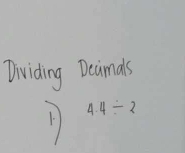 Dividing Decimals
1.) 4.4 ÷ 2